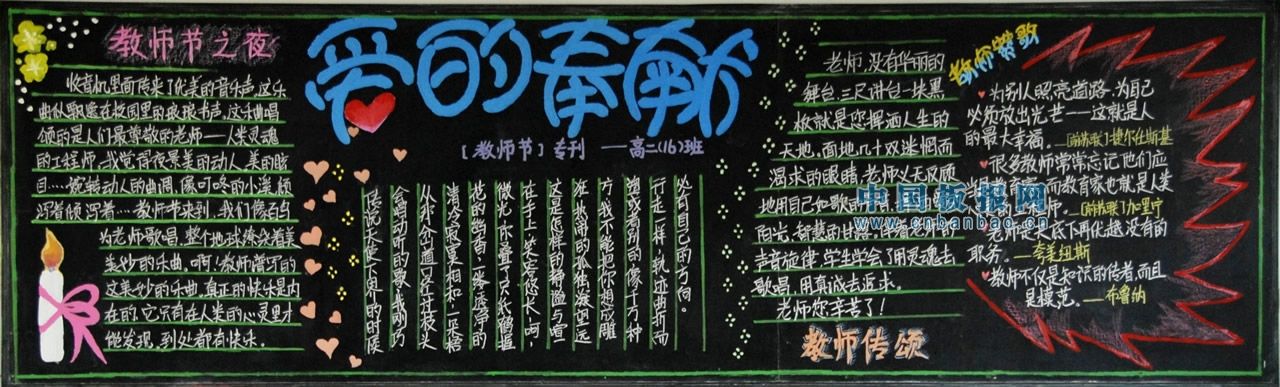 教师节之夜
收音机里面传来了优美的音乐声，这乐
曲纵飘逸在校园里的琅琅书声，这乐曲唱
颂的是人们最尊敬的老师——人类灵魂
的工程师，我觉得夜景美的动人，美的眩
目……婉转动人的曲调，像叮咚的小溪，倾
泻着倾泻着……教师节来到，我们像百鸟
为老师歌唱，整个地球缭绕着美
美妙的乐曲。啊！教师谱写的
这美妙的乐曲，真正的快乐是内
在的，它只有在人类的心灵里才
能发现，到处都有快乐。
爱的奉献
[教师节]专刊 ——高二(16)班
必有自己的方向。
行走一样，轨迹曲折而
塑或者别的像千万种
方，我不能把你想成雕
狂，执带的孤独海望远
这是怎样的静谧与喧
在手上，笑容悠长，呵，
微光，你叠了只纸鹤握
他的幽香，一缕透净的
清冷寂寞相和，一点烛
从那个山道口经过，枝头
会唱动听的歌，我刚巧
传说天使下界的时候
老师，没有华丽的
舞台，三尺讲台一块黑
板就是您挥洒人生的
天地。面地几十双迷惘而
渴求的眼睛，老师义无反顾
地用自己如歌
阳光，智慧的甘露，伴着
声音旋律，学生学会了用灵魂去
歌唱，用真诚去追求。
老师您辛苦了！
教师传颂
教师赞歌
为别人照亮道路，为自己
必须放出光芒——这就是人
的最大幸福。——[前苏联]捷尔任斯基
很多教师常常忘记他们应
而教育家也就是人类
师。——[前苏联]加里宁
老师是太底下再优越没有的
职务。——夸美纽斯
教师不仅是知识的传者，而且
是模范。——布鲁纳
中国板报网
www.cnbanbao.cn